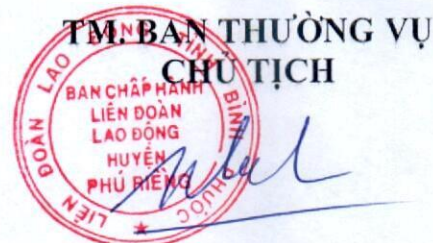 TM. BAN THƯỜNG VỤ
CHỦ TỊCH
LIÊN ĐOÀN LAO ĐỘNG TỈNH BÌNH PHƯỚC
BAN CHẤP HÀNH
LIÊN ĐOÀN
LAO ĐỘNG
HUYỆN
PHÚ RIỀNG